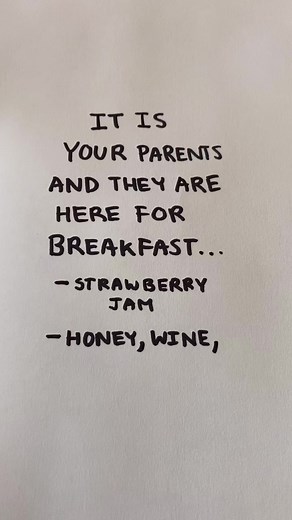 IT IS
YOUR PARENTS
AND THEY ARE
HERE FOR
BREAKFAST...
- STRAWBERRY
JAM
- HONEY, WINE,